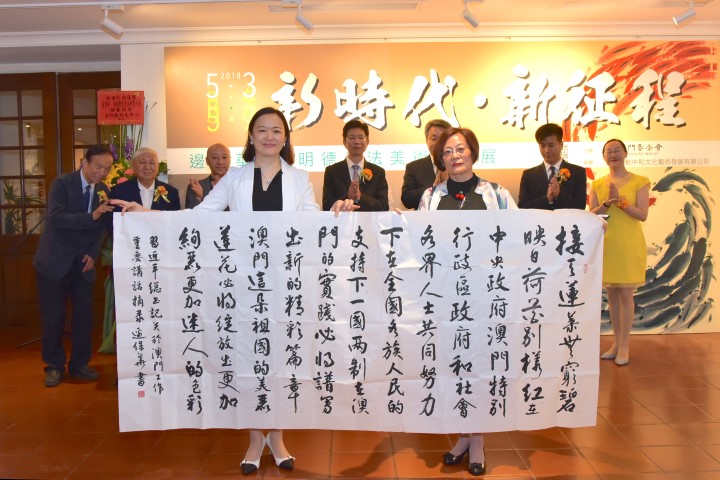 2018
新時代·新征程
明德
法美術
展
門基金會
中和文化藝術發展有限公司
接天蓮葉無窮碧
映日荷花別樣紅在
中央政府澳門特別
行政區政府和社會
各界人士共同努力
下在全國各族人民的
支持下一國兩制在澳
門的實踐必將譜寫
出新的精彩篇章
澳門這朵祖國的美麗
蓮花必將綻放出更加
絢麗更加迷人的色彩
習近平總書記關於澳門工作
重要講話摘錄 保華書